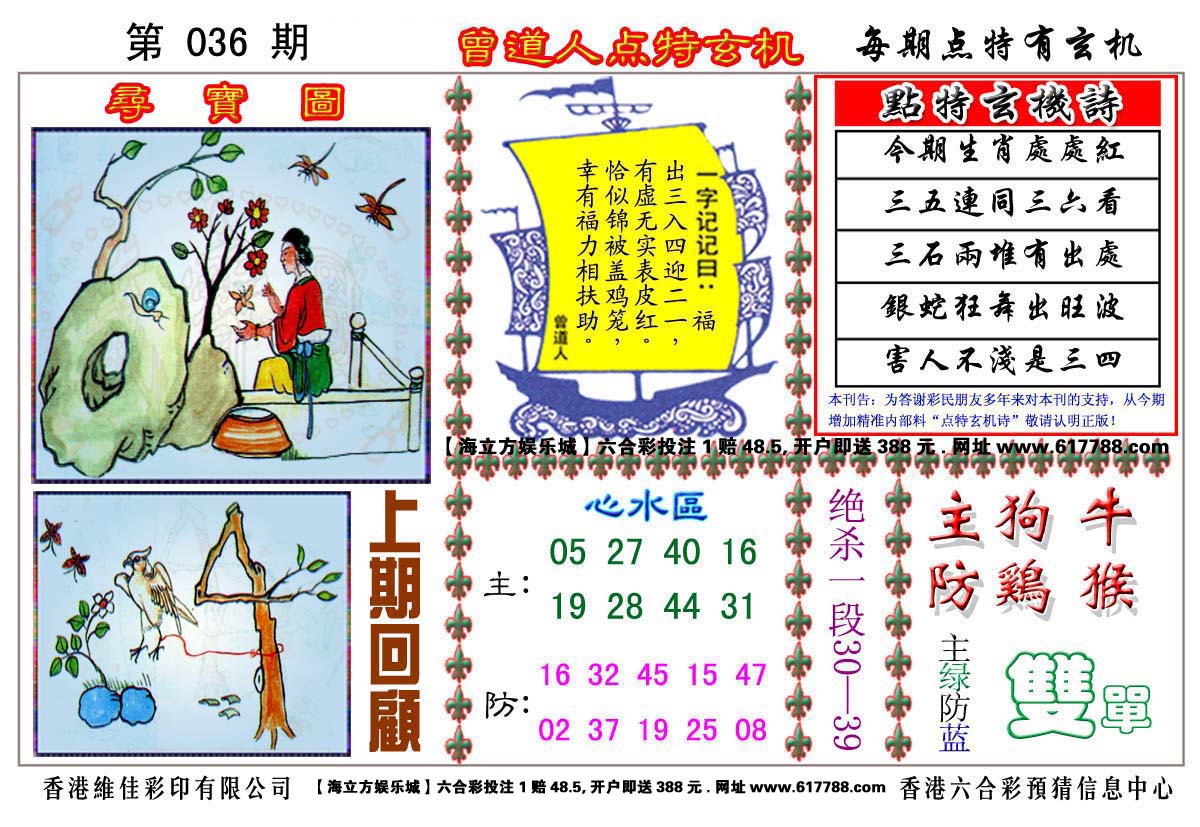 第 036 期
曾道人点特玄机
每期点特有玄机
尋寶圖
一字记记曰：福
出三入四迎二一，
有虚无实表皮红。
恰似锦被盖鸡笼，
幸有福力相扶助。
曾道人
點特玄機詩
今期生肖處處紅
三五連同三六看
三石兩堆有出處
銀蛇狂舞出旺波
害人不淺是三四
本刊告：为答谢彩民朋友多年来对本刊的支持，从今期
增加精准内部料“点特玄机诗”敬请认明正版！
【海立方娱乐城】六合彩投注1赔48.5,开户即送388元.网址www.617788.com
上期回顧
心水區
主：
05 27 40 16
19 28 44 31
防：
16 32 45 15 47
02 37 19 25 08
绝杀一段30—39
主狗牛
防鷄猴
主绿防蓝
雙單
香港維佳彩印有限公司
【海立方娱乐城】六合彩投注1赔48.5,开户即送388元.网址www.617788.com
香港六合彩預猜信息中心